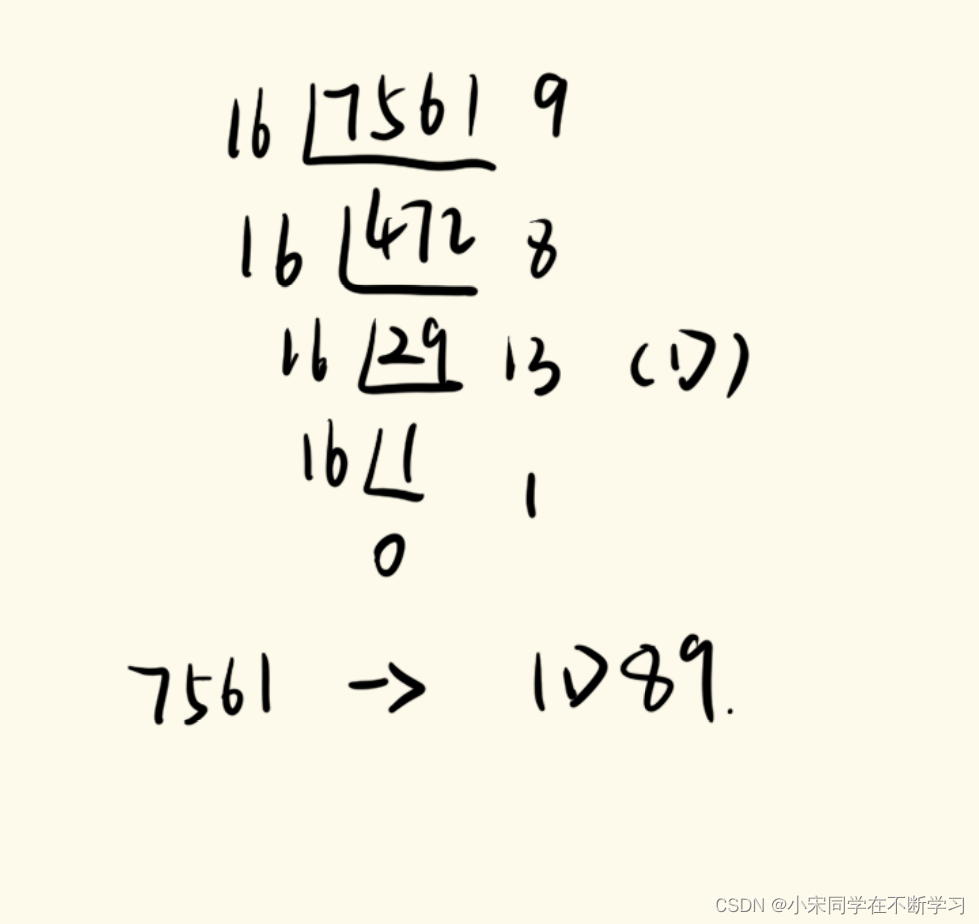 16 7561 9
16 472 8
16 29 13 (D)
16 1 1
0
7561 → 1D89.
CSDN @小宋同学在不断学习